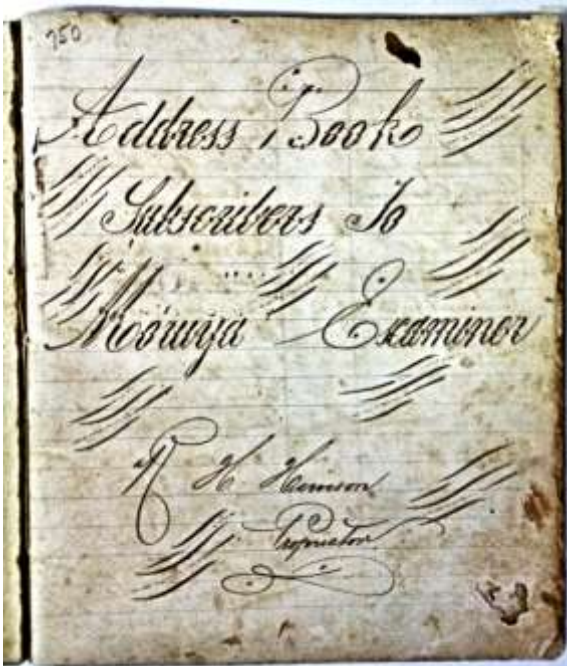 750
Address Book
Subscribers To
Moruya Examiner
R H Harrison
Proprietor